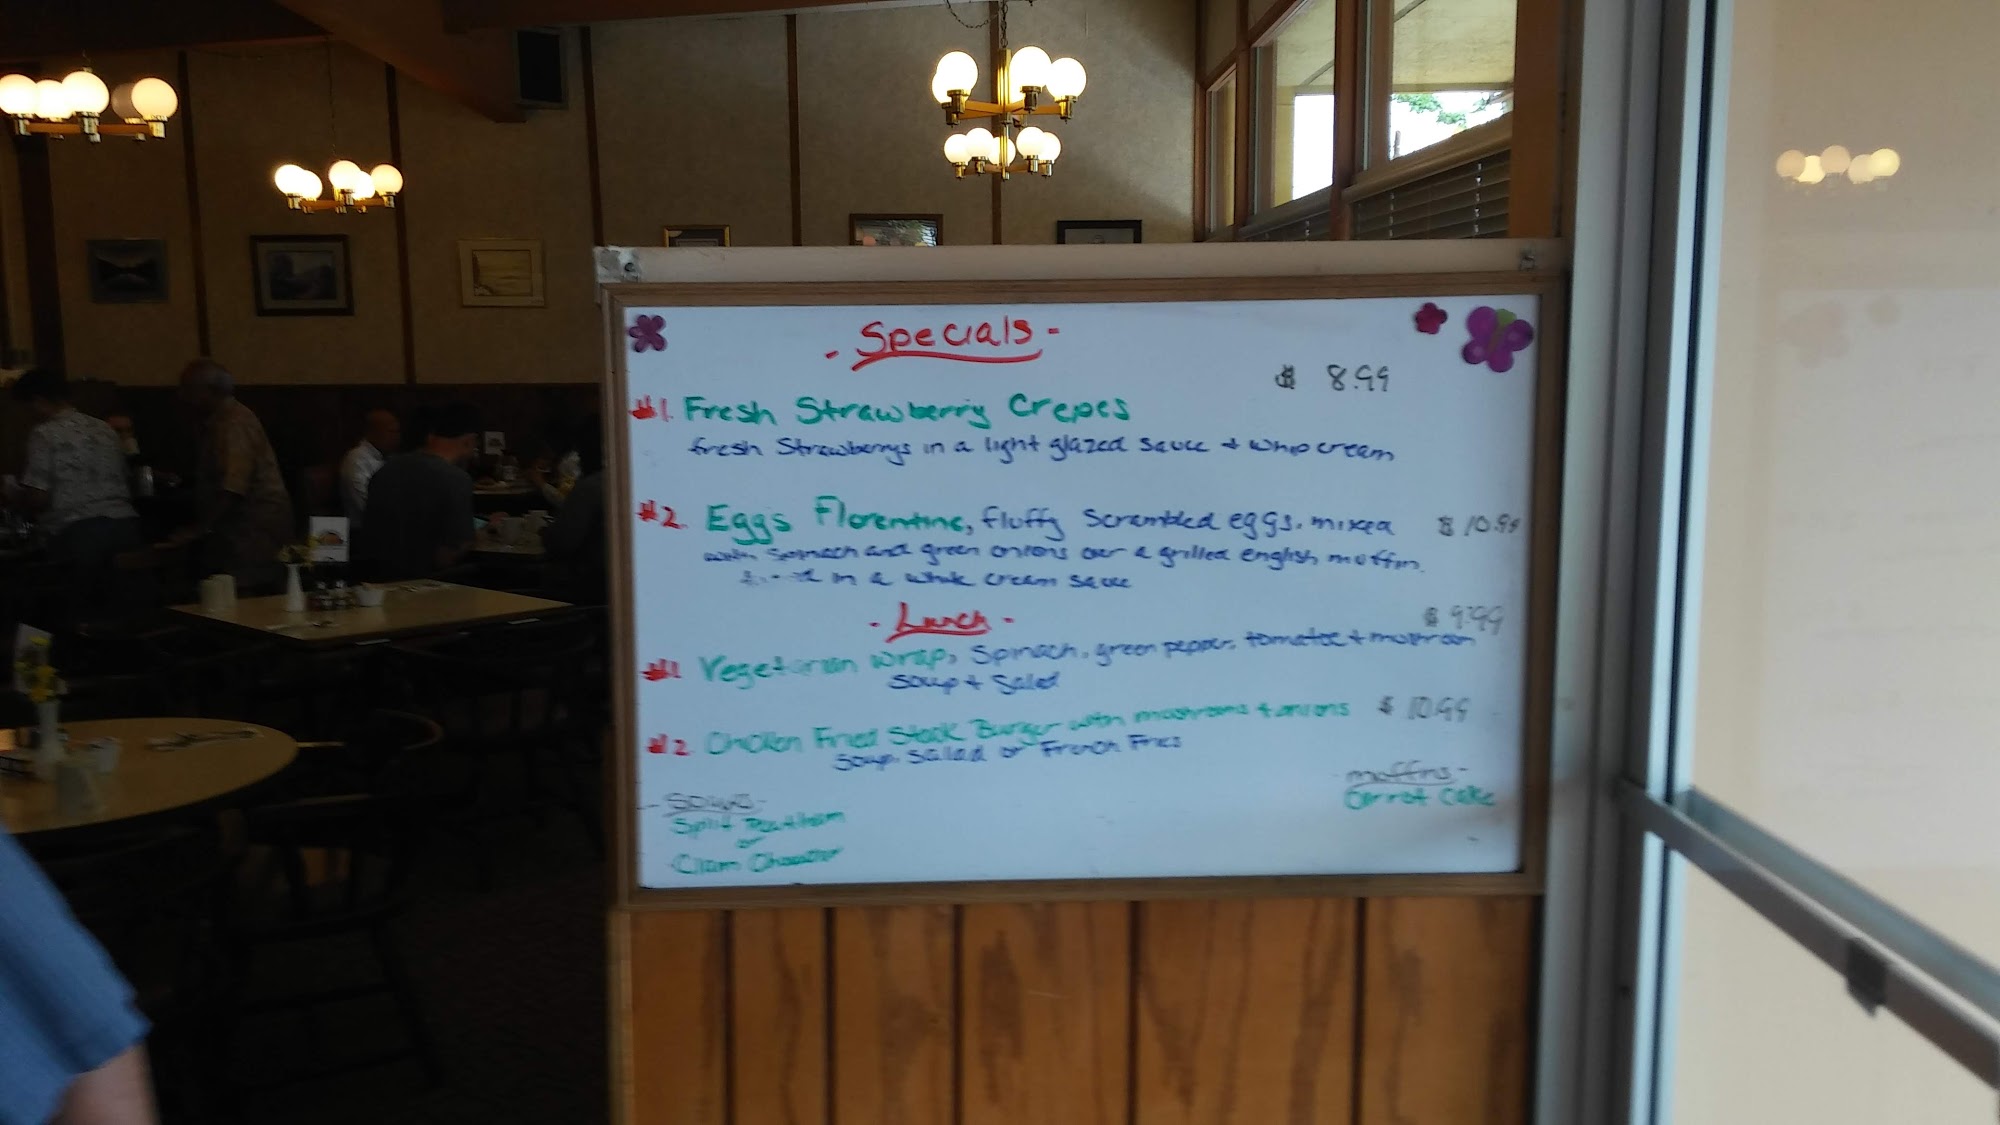 - Specials -
$ 8.99
#1. Fresh Strawberry Crepes
fresh Strawberrys in a light glazed sauce + whip cream
#2. Eggs Florentine, fluffy scrambled eggs, mixed $ 10.99
with spinach and green onions over a grilled english muffin,
in a white cream sauce
- Lunch -
$ 9.99
#1 Vegetarian wrap, spinach, green pepper, tomatoe + mushroom
soup + salad
#2 Chicken Fried Steak Burger with mushrooms + onions $ 10.99
soup, salad or French Fries
- Soups -
Split Pea + Ham
or
Clam Chowder
- muffins -
Carrot Cake